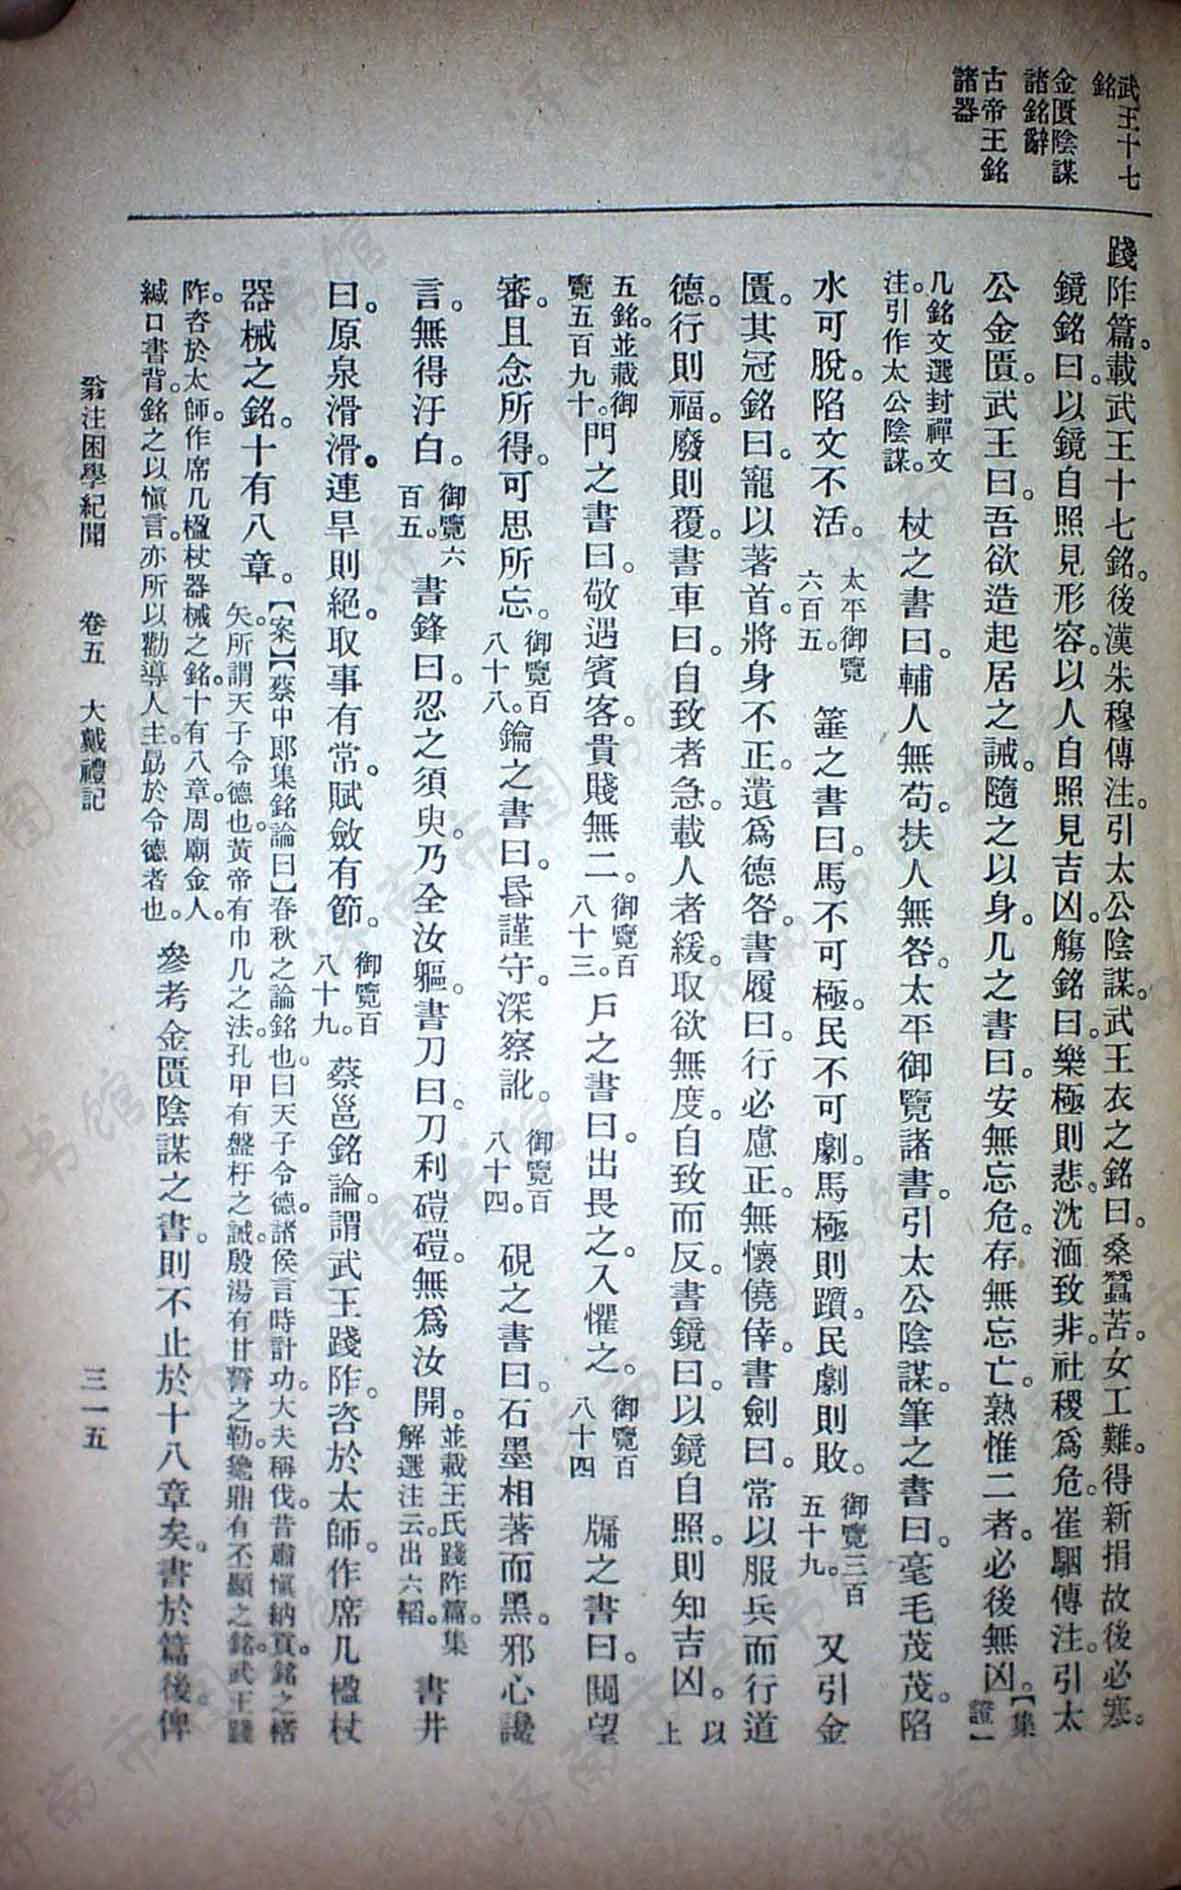 武王十七
銘
金匱陰謀
諸銘辭
古帝王銘
諸器
踐阼篇。載武王十七銘。後漢朱穆傳注。引太公陰謀。武王衣之銘曰。桑蠶苦。女工難。得新捐故後必寒。
鏡銘曰。以鏡自照見形容。以人自照見吉凶。觴銘曰。樂極則悲。沈湎致非。社稷爲危。崔駰傳注。引太
公金匱。武王曰。吾欲造起居之誡。隨之以身。几之書曰。安無忘危。存無忘亡。熟惟二者。必後無凶。【集
證】
几銘文選封禪文
注。引作太公陰謀。
杖之書曰。輔人無苟。扶人無咎。太平御覽諸書。引太公陰謀。筆之書曰。毫毛茂茂。陷
水可脫。陷文不活。
太平御覽
六百五。
箠之書曰。馬不可極。民不可劇。馬極則躓。民劇則敗。
御覽三百
五十九。
又引金
匱。其冠銘曰。寵以著首。將身不正。遺爲德咎。書履曰。行必慮正。無懷僥倖。書劍曰。常以服兵而行道
德。行則福。廢則覆。書車曰。自致者急。載人者緩。取欲無度。自致而反。書鏡曰。以鏡自照。則知吉凶。
以
上
五銘。並載御
覽五百九十。
門之書曰。敬遇賓客。貴賤無二。
御覽百
八十三。
戶之書曰。出畏之。入懼之。
御覽百
八十四
牖之書曰。闚望
審。且念所得。可思所忘。
御覽百
八十八。
鑰之書曰。昬謹守。深察訛。
御覽百
八十四。
硯之書曰。石墨相著而黑。邪心讒
言。無得汙白。
御覽六
百五。
書鋒曰。忍之須臾。乃全汝軀。書刀曰。刀利磑磑。無爲汝開。
並載王氏踐阼篇。集
解選注云。出六韜。
書井
曰。原泉滑滑。連旱則絕。取事有常。賦斂有節。
御覽百
八十九。
蔡邕銘論。謂武王踐阼。咨於太師。作席几楹杖
器械之銘。十有八章。
【案】【蔡中郎集銘論曰】春秋之論銘也。曰天子令德。諸侯言時計功。大夫稱伐。昔肅愼納貢。銘之楛
矢。所謂天子令德也。黃帝有巾几之法。孔甲有盤杅之誡。殷湯有甘誓之勒。毚鼎有丕顯之銘。武王踐
阼。咨於太師。作席几楹杖器械之銘。十有八章。周廟金人。
緘口書背。銘之以愼言。亦所以勸導人主。勗於令德者也。
參考金匱陰謀之書。則不止於十八章矣。書於篇後。俾
翁注困學紀聞　卷五　大戴禮記　三一五